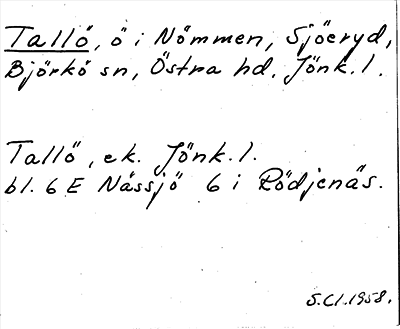 Tallö, ö i Nömmen, Sjöeryd,
Björkö sn, Östra hd, Jönk. l.
Tallö, ek. Jönk. l.
bl. 6 E Nässjö 6 i Rödjenäs.
S.Cl. 1958.